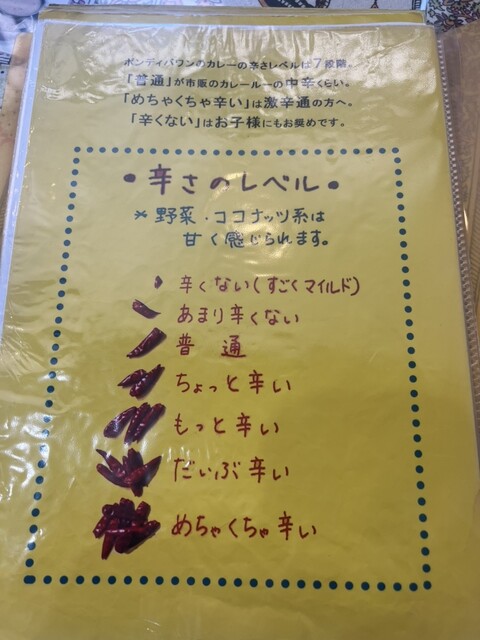 ボンディバワンのカレーの辛さレベルは7段階。
「普通」が市販のカレールーの中辛くらい。
「めちゃくちゃ辛い」は激辛通の方へ。
「辛くない」はお子様にもお奨めです。
•辛さのレベル•
*野菜・ココナッツ系は
甘く感じられます。
辛くない(すごくマイルド)
あまり辛くない
普通
ちょっと辛い
もっと辛い
だいぶ辛い
めちゃくちゃ辛い